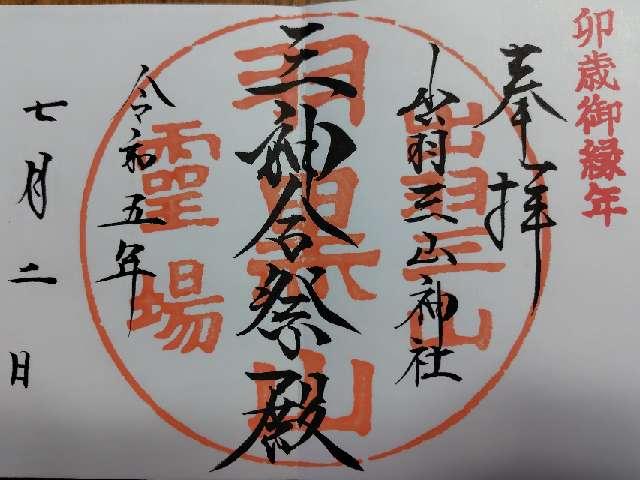 卯歳御縁年
奉拝
出羽三山神社
三神合祭殿
令和五年
七月二日
出羽三山
羽黒山
霊場